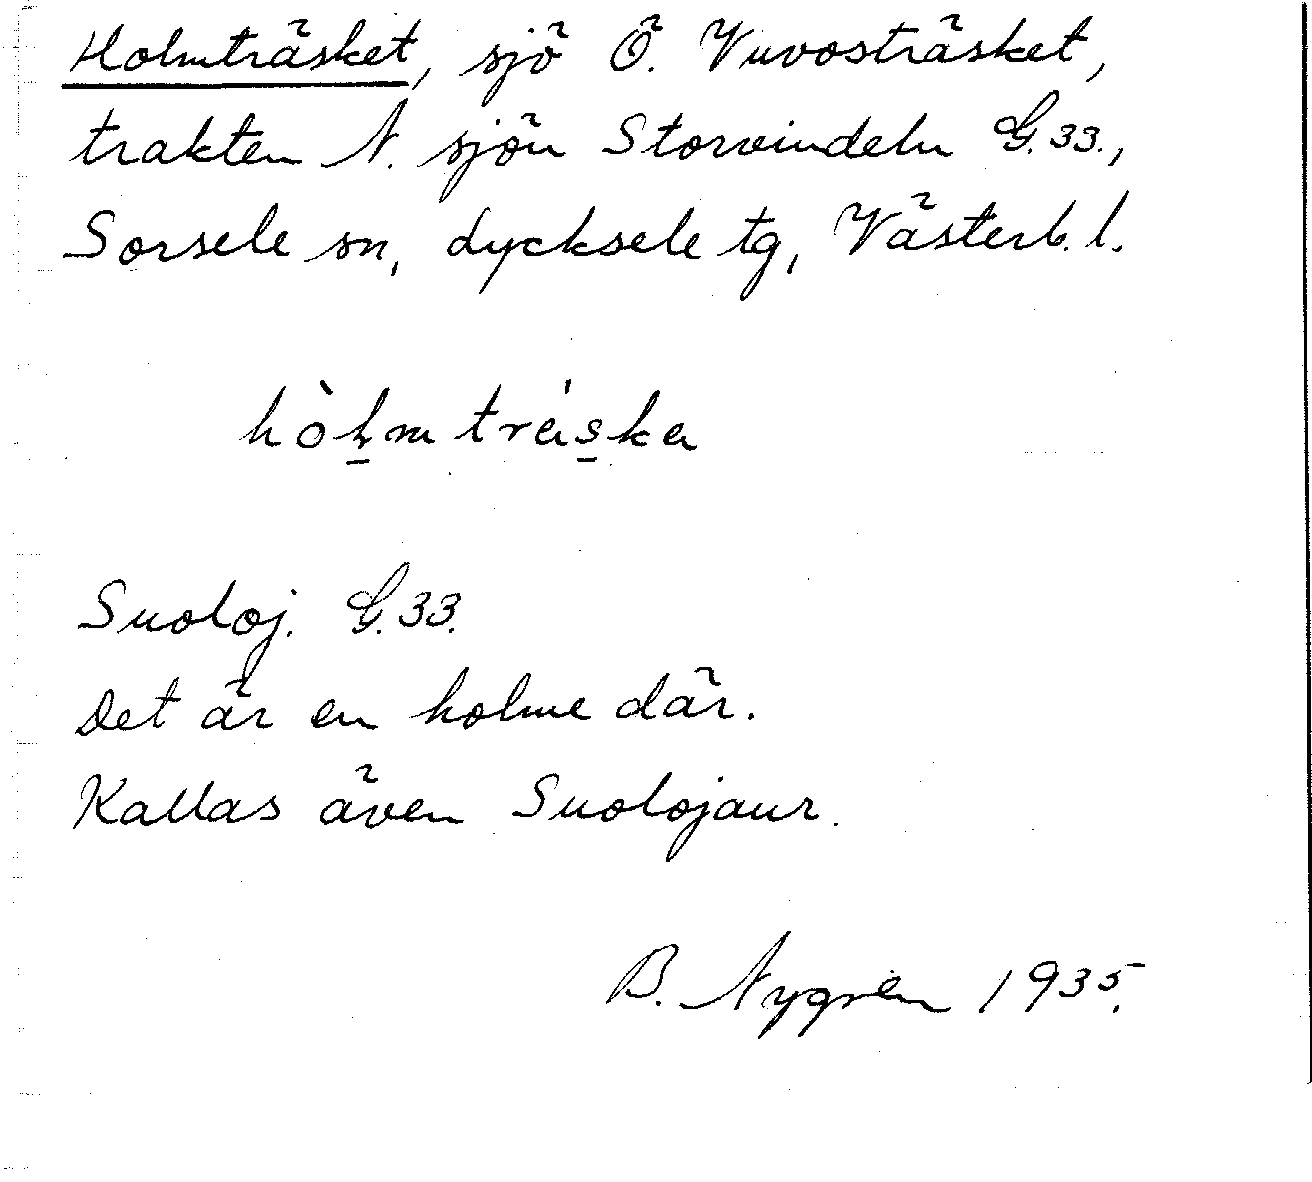 Holmträsket, sjö Ö. Vuvosträsket,
trakten N. sjön Storvindeln G.33.,
Sorsele sn, Lycksele tg, Västerb. l.
hòlmtréska
Suoloj. G.33.
Det är en holme där.
Kallas även Suolojaur.
B. Nygren 1935.